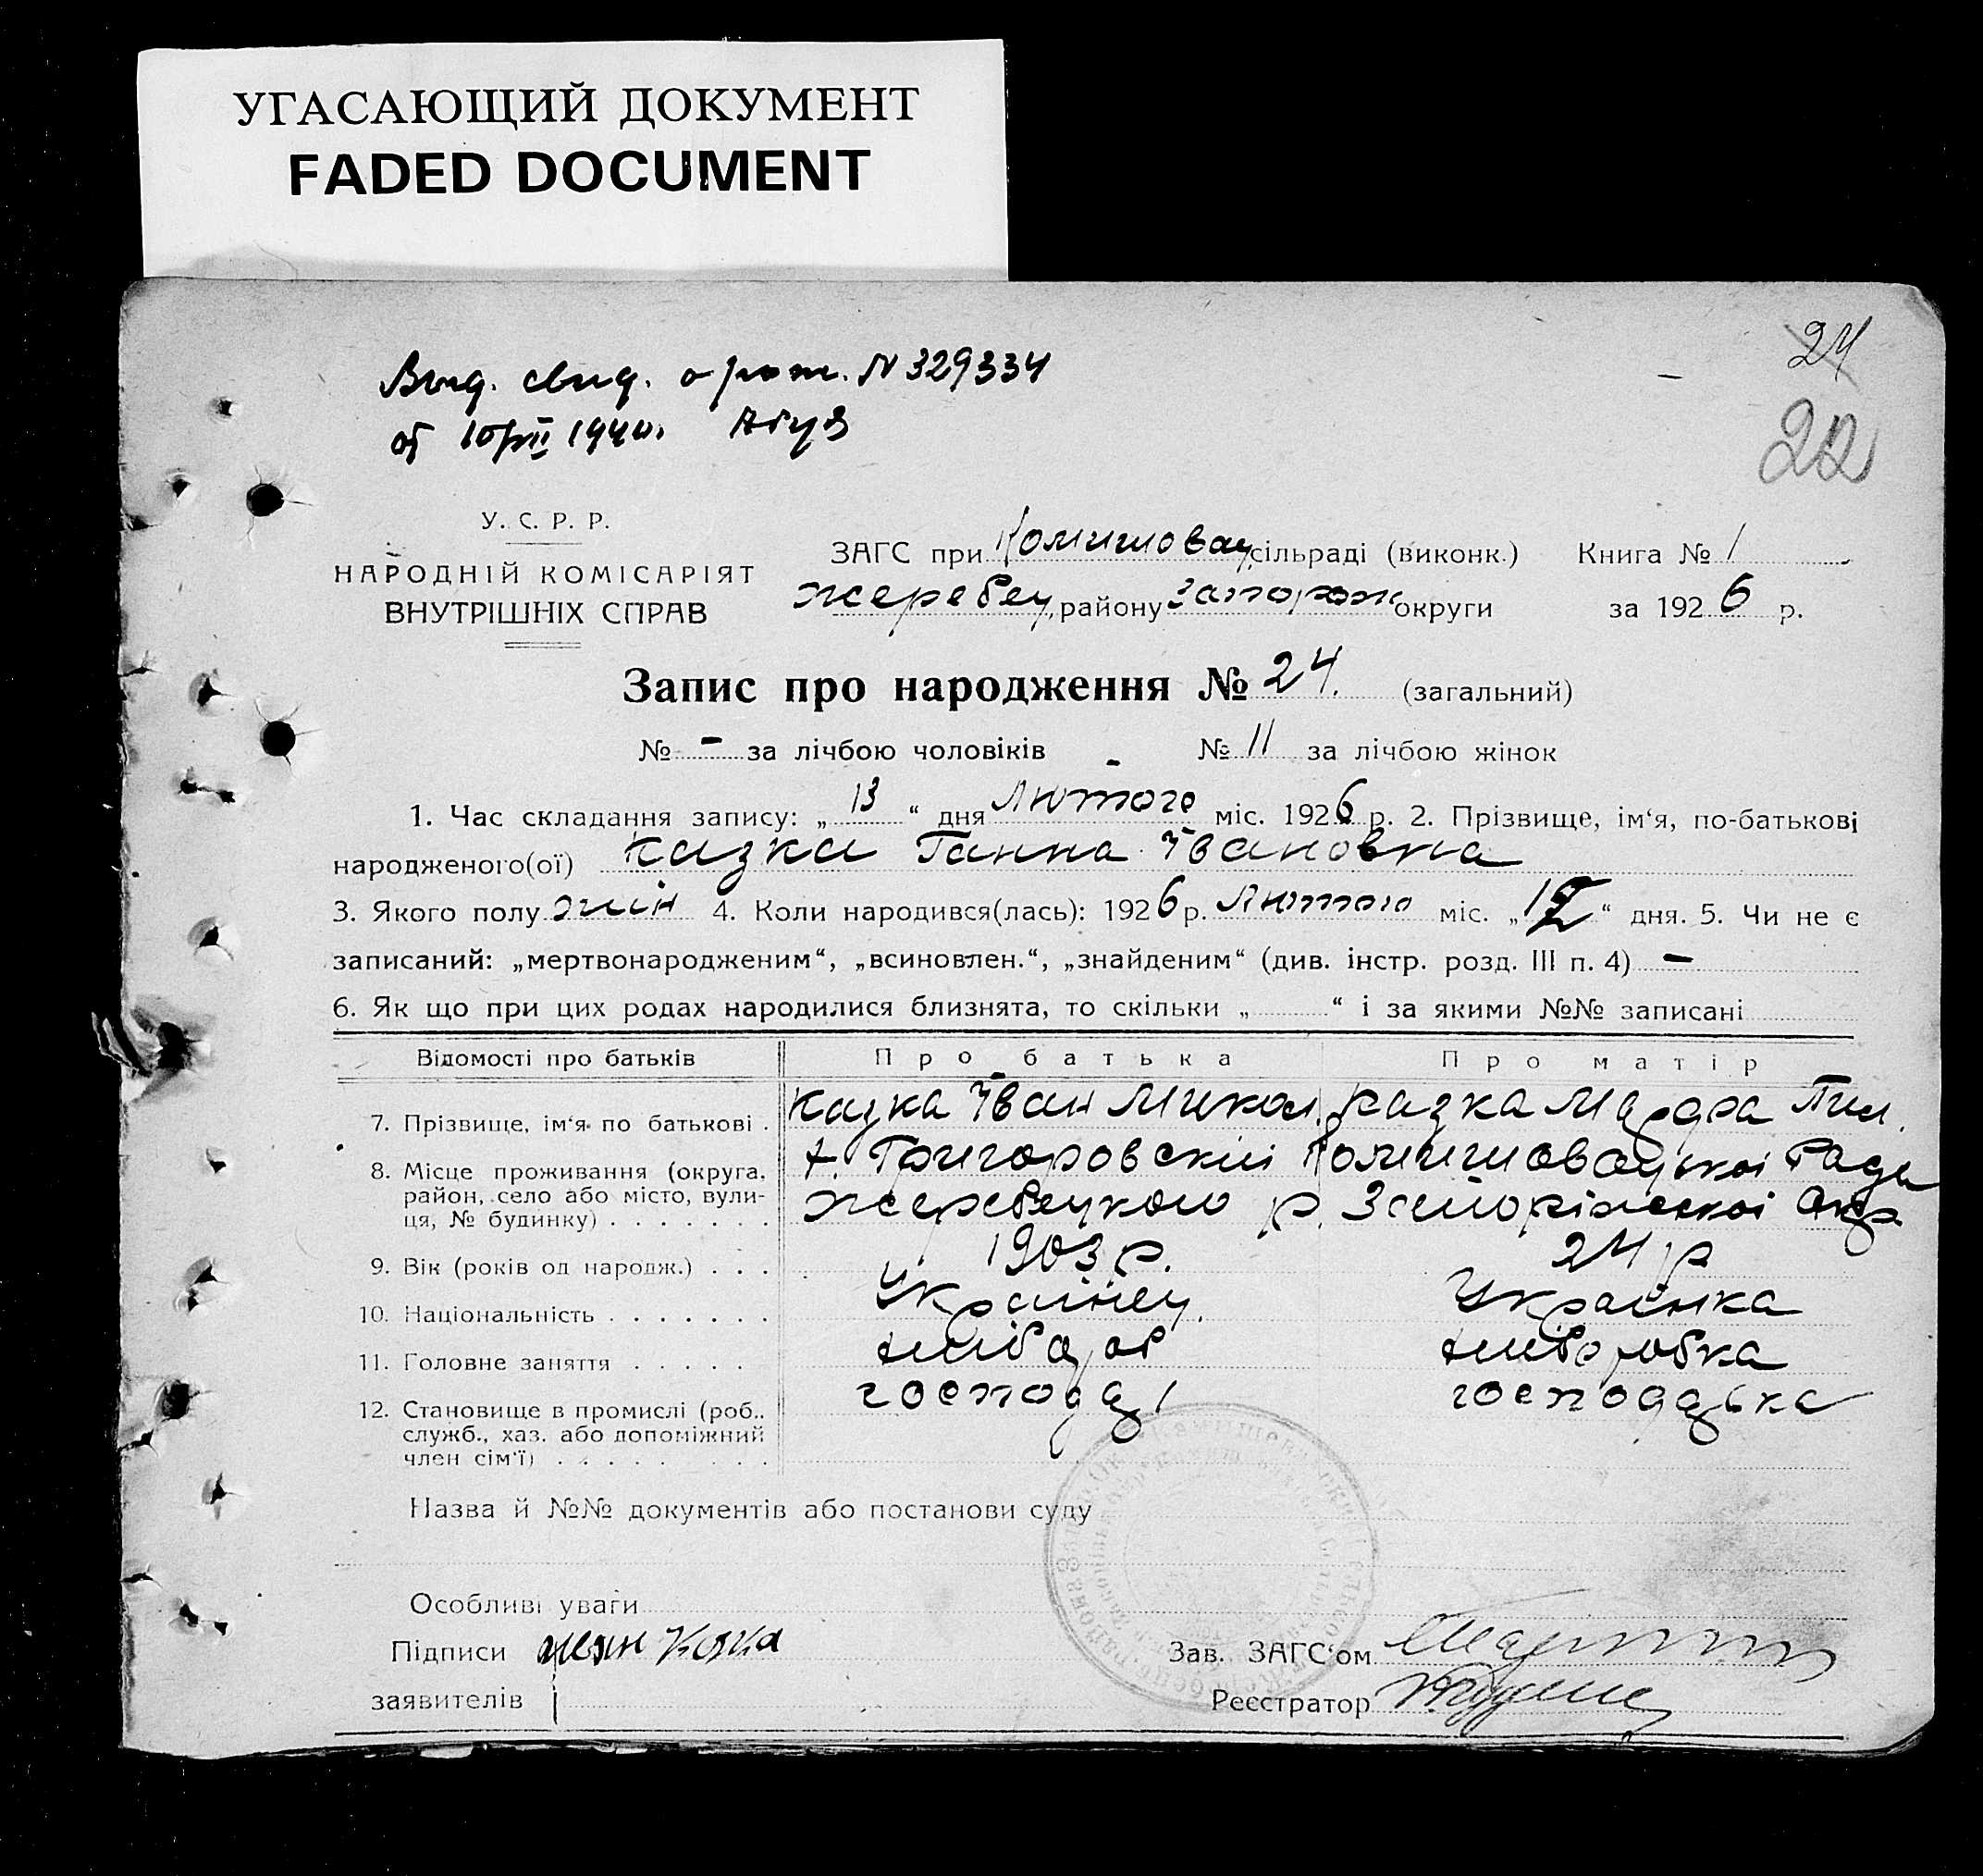 УГАСАЮЩИЙ ДОКУМЕНТ
FADED DOCUMENT
24
22
Выд. свид. о рож. N 329334
от 10/VII 1940.
У. С. Р. Р.
НАРОДНІЙ КОМІСАРІЯТ
ВНУТРІШНІХ СПРАВ
ЗАГС при Комишовац. сільраді (виконк.) Книга № 1
жеребец. району Запорож округи за 1926 р.
Запис про народження № 24. (загальний)
№ - за лічбою чоловіків № 11 за лічбою жінок
1. Час складання запису: „ 13 “ дня Лютого міс. 1926 р. 2. Прізвище, ім‘я, по-батькові
народженого(ої) Казка Ганна Івановна
3. Якого полу жін 4. Коли народився(лась): 1926 р. Лютого міс. „ 12 “ дня. 5. Чи не є
записаний: „мертвонародженим“, „всиновлен.“, „знайденим“ (див. інстр. розд. III п. 4) -
6. Як що при цих родах народилися близнята, то скільки „ “ і за якими №№ записані
Відомості про батьків Про батька Про матір
7. Прізвище, ім‘я по батькові . Казка Іван Микол. Казка Марфа Пил.
8. Місце проживання (округа, х. Григоровский Комишовацької Ради
район, село або місто, вули- жеребецкого р. Запоріжскої Окр
ця, № будинку) . . . . . . .
9. Вік (років од народж.) . . . 1903 р. 24 р
10. Національність . . . . . . . Українец. Українка
11. Головне заняття . . . . . хлібороб хліборобка
12. Становище в промислі (роб., господар господарка
служб., хаз. або допоміжний
член сім‘ї) . . . . . . . . .
Назва й №№ документів або постанови суду
Особливі уваги
Підписи Казка Зав. ЗАГС‘ом
заявителів Реєстратор